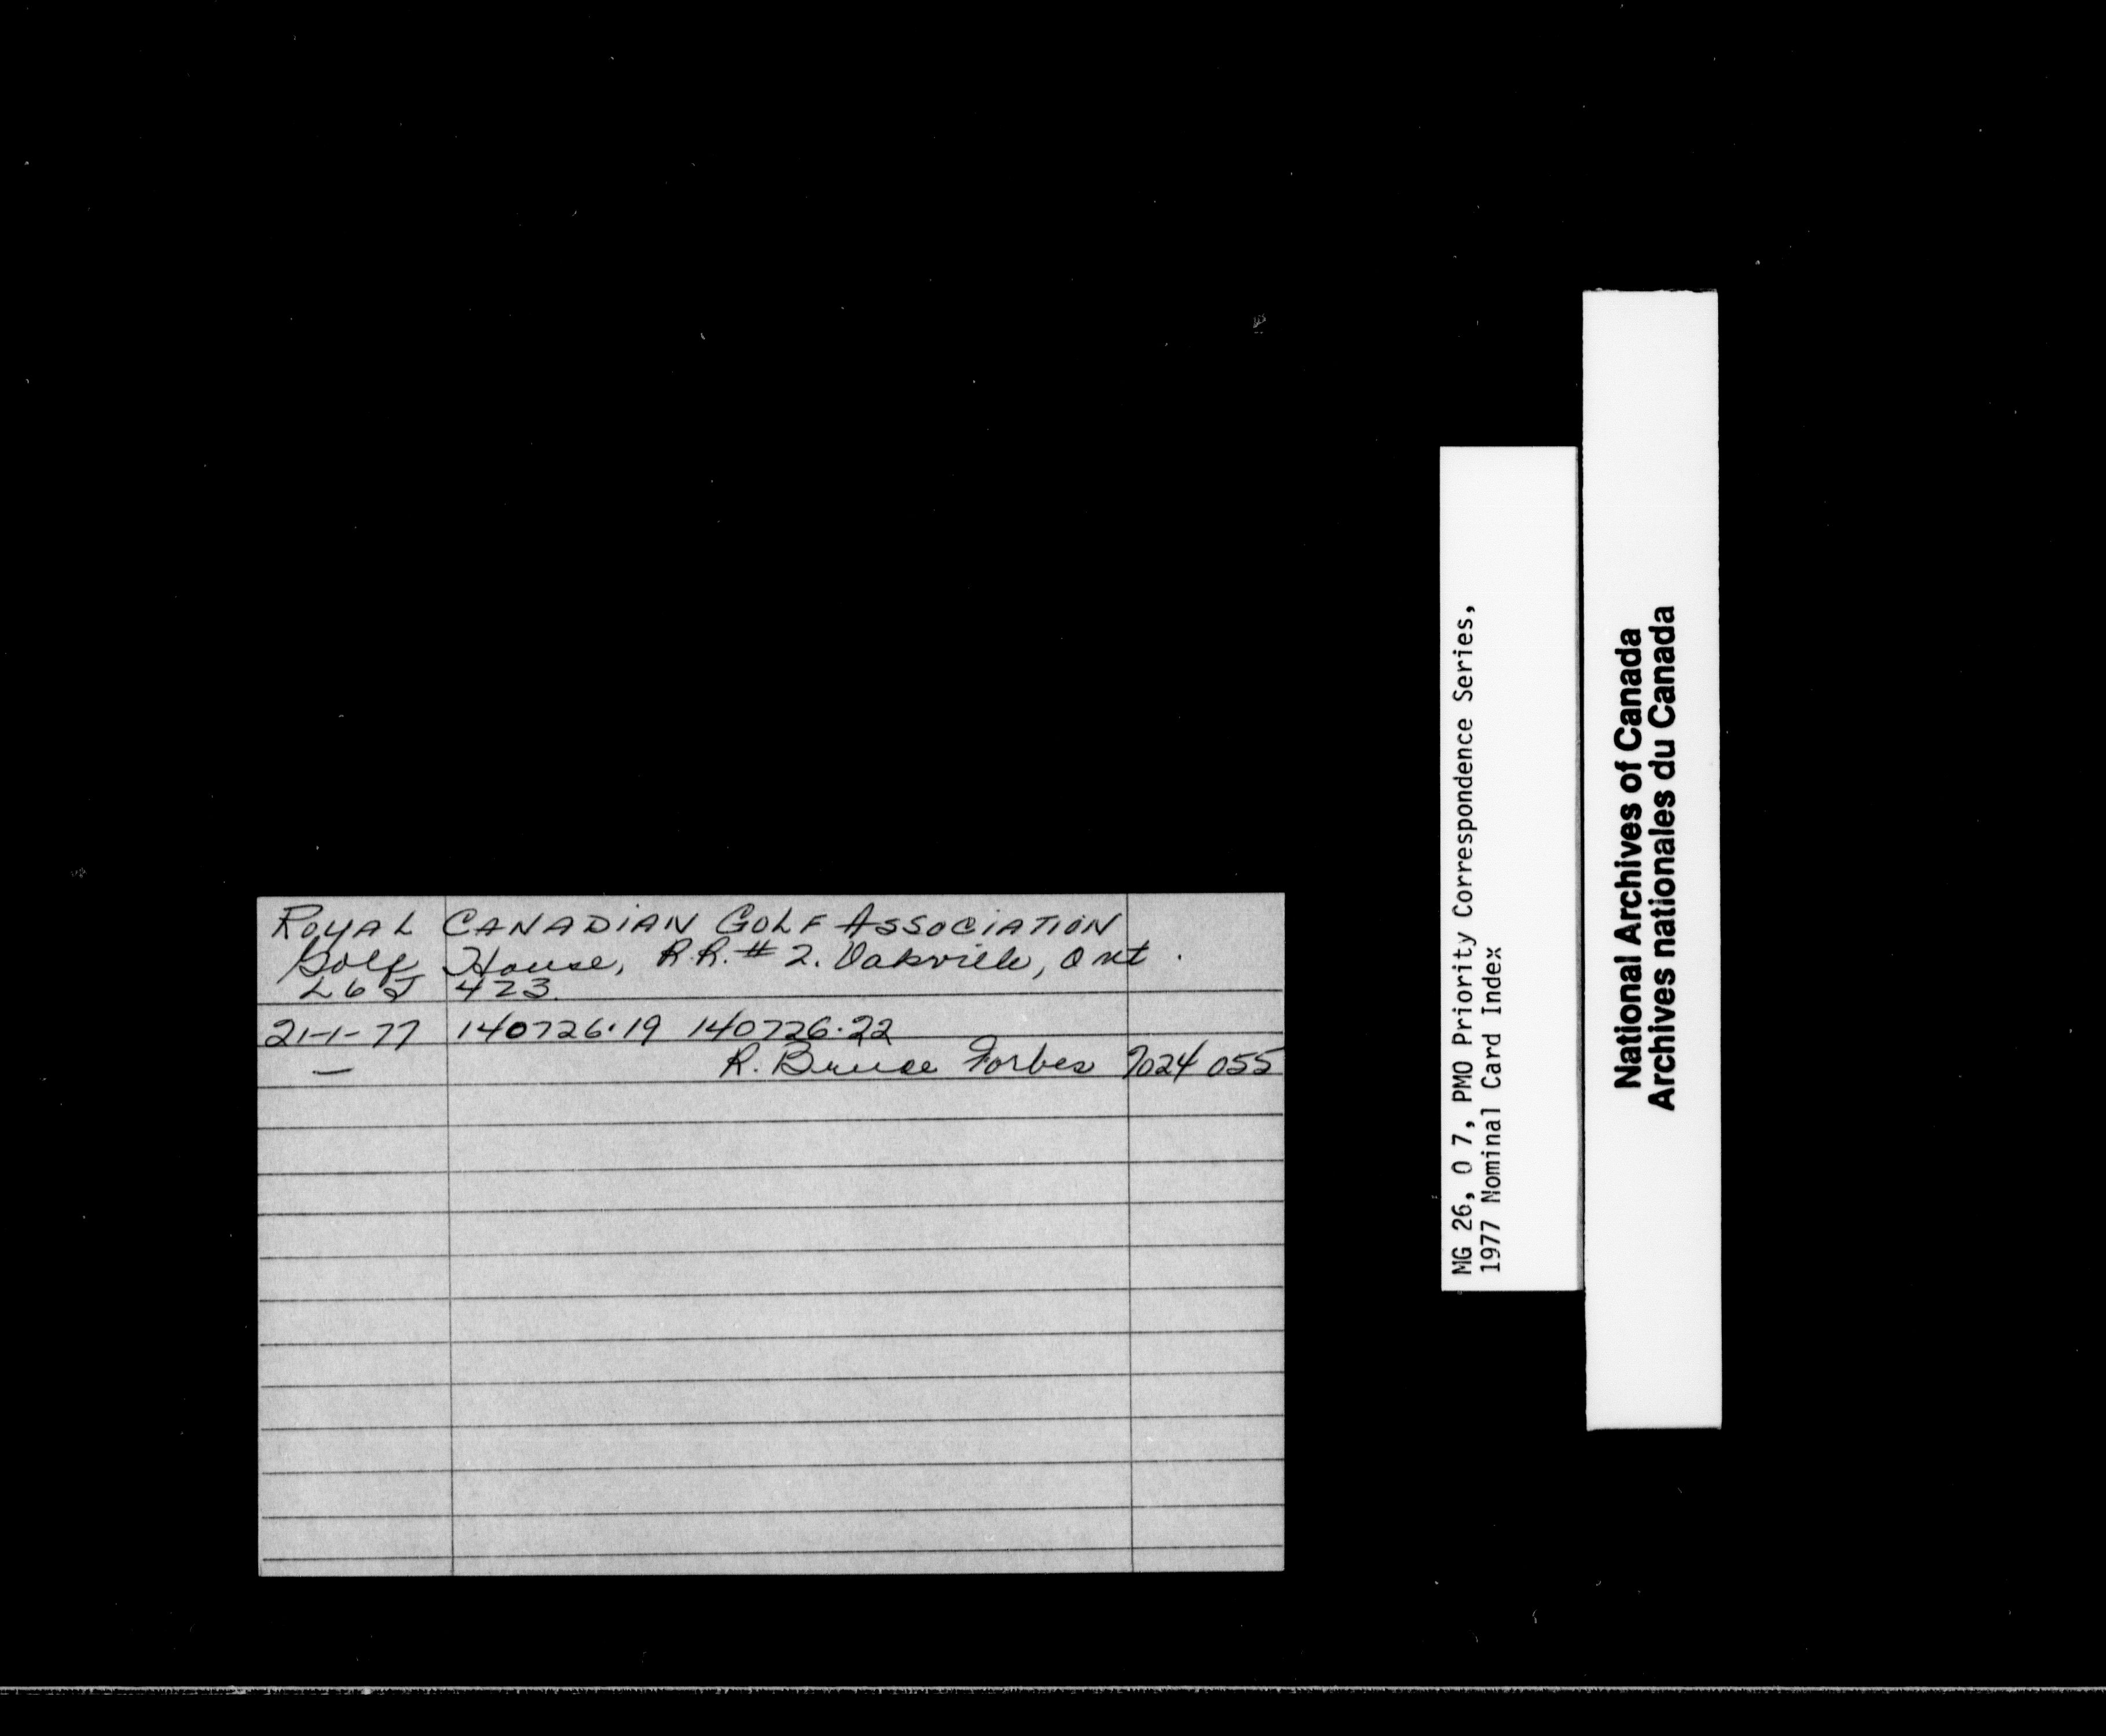 ROYAL CANADIAN GOLF ASSOCIATION
Golf House, R.R. # 2. Oakville, Ont.
L6J 4Z3.
21-1-77 140726.19 140726.22
— R. Bruce Forbes 7024 055
MG 26, O 7, PMO Priority Correspondence Series,
1977 Nominal Card Index
National Archives of Canada
Archives nationales du Canada